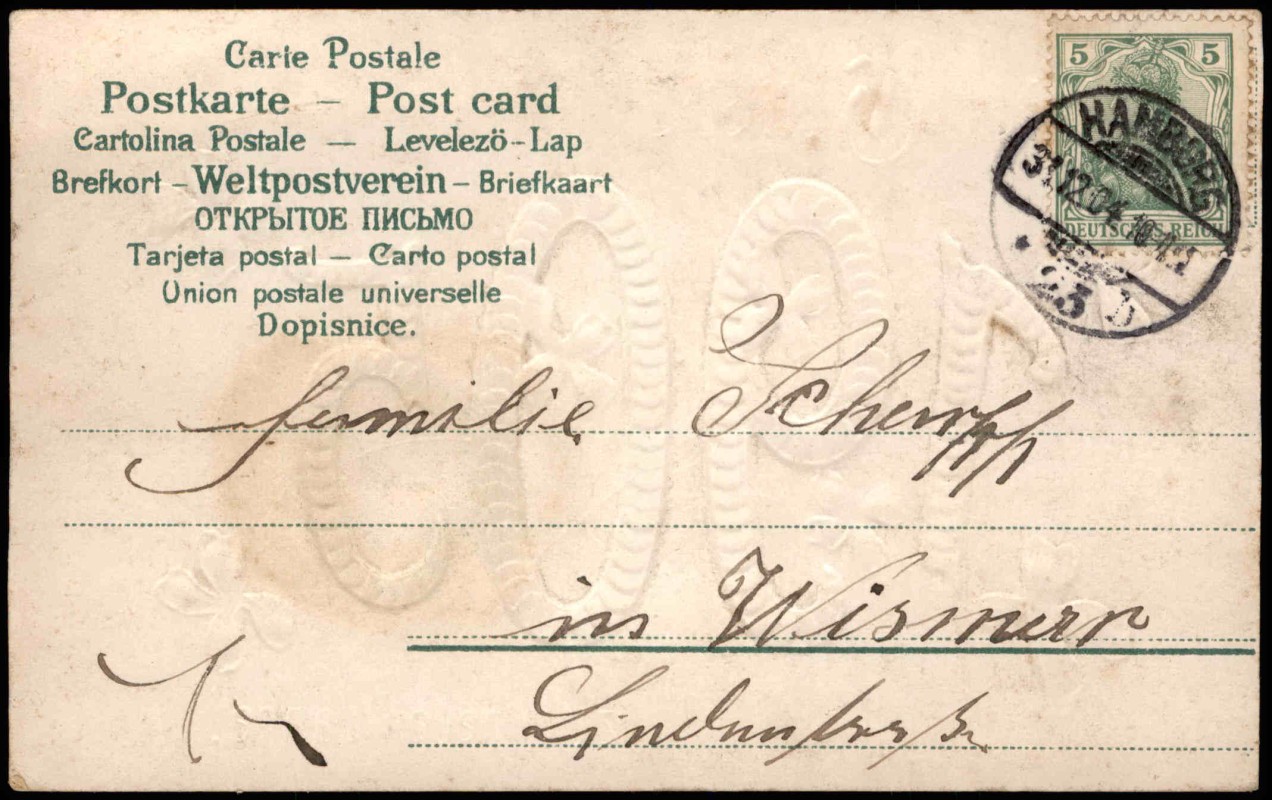 Carte Postale
Postkarte – Post card
Cartolina Postale — Levelezö-Lap
Brefkort – Weltpostverein – Briefkaart
ОТКРЫТОЕ ПИСЬМО
Tarjeta postal — Carto postal
Union postale universelle
Dopisnice.
5 5
HAMBURG
31.12.04 10-11
DEUTSCHES REICH
* 23 b
familie
in Wismar
Lindenstraße